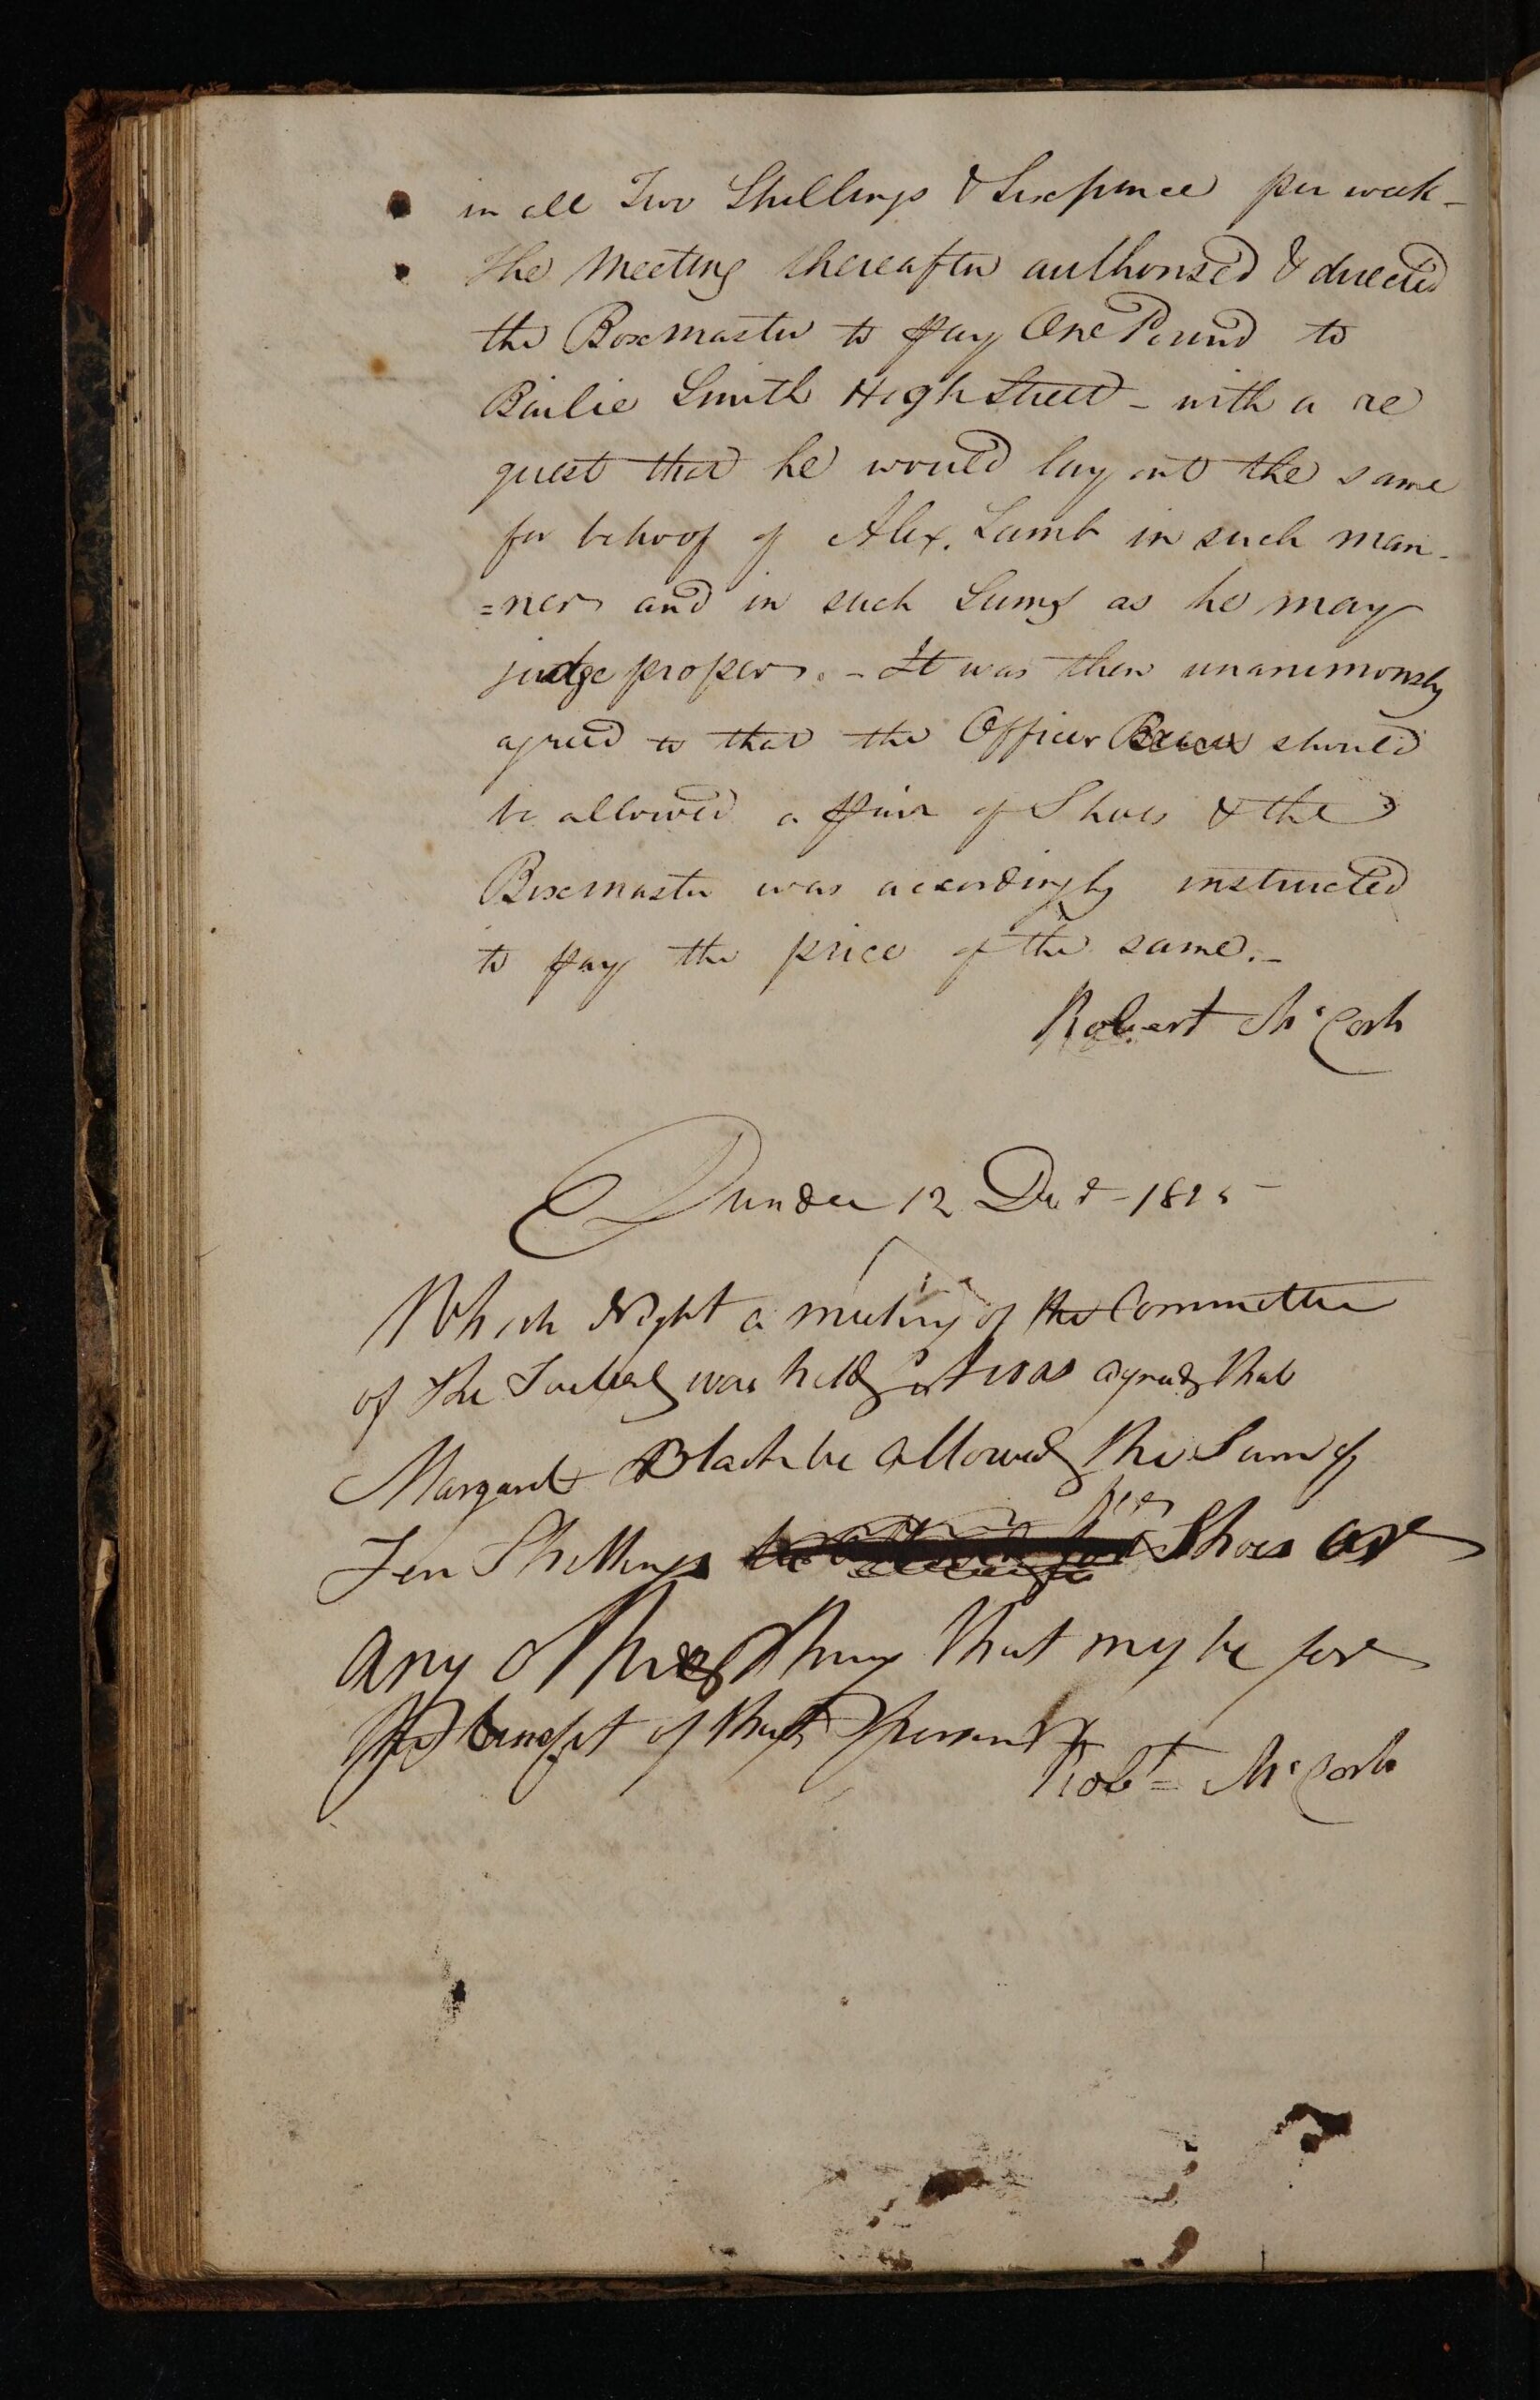 in all Two Shillings & Sixpence per week -
the Meeting thereafter authorised & directed
the Boxmaster to pay One Pound to
Bailie Smith High Street - with a re
quest that he would lay out the same
for behoof of Alex. Lamb in such man-
=ner and in such Sums as he may
judge proper. - It was then unanimously
agreed to that the Officer should
be allowed a pair of Shoes & the
Boxmaster was accordingly instructed
to pay the price of the same. -
Robert McCosh
Dundee 12 Decr - 1825 -
Which Night a meeting of the Committee
of the was held it was agreed that
Margaret Black be allowed the Sum of
Ten Shillings for Shoes or
any other thing that my be for
the benefit of that person
Robt McCosh